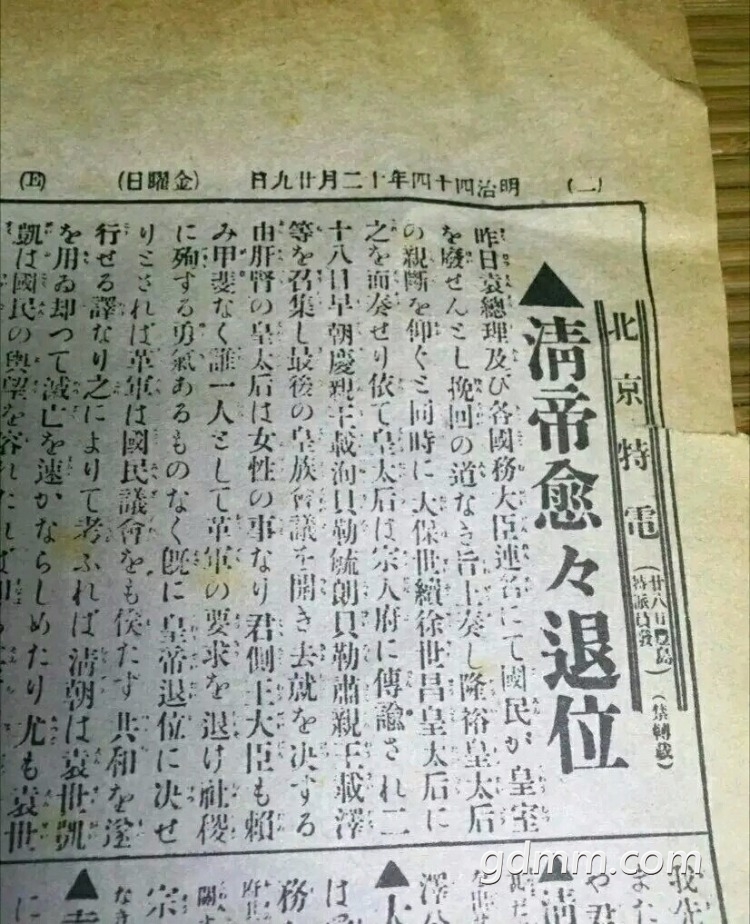 (二)
明治四十四年十二月廿九日
(金曜日)
(五)
北京特電
(廿八日豊島
特派員發)
(禁轉載)
▲清帝愈々退位
昨日袁總理及び各國務大臣連名にて國民が皇室
を廢せんとし挽回の道なき旨上奏し隆裕皇太后
の親斷を仰ぐと同時に大保世續徐世昌皇太后に
之を面奏せり依て皇太后は宗人府に傳諭され二
十八日早朝慶親王載洵貝勒毓朗貝勒肅親王載澤
等を召集し最後の皇族會議を開き去就を決する
由肝腎の皇太后は女性の事なり君側王大臣も賴
み甲斐なく誰一人として革軍の要求を退け社稷
に殉する勇氣あるものなく既に皇帝退位に決せ
りとされば革軍は國民議會をも俟たず共和を遂
行せる譯なり之によりて考ふれば清朝は袁世凱
を用ゐ却つて滅亡を速かならしめたり尤も袁世
凱は國民の輿望を容れたれば
gdmm.com